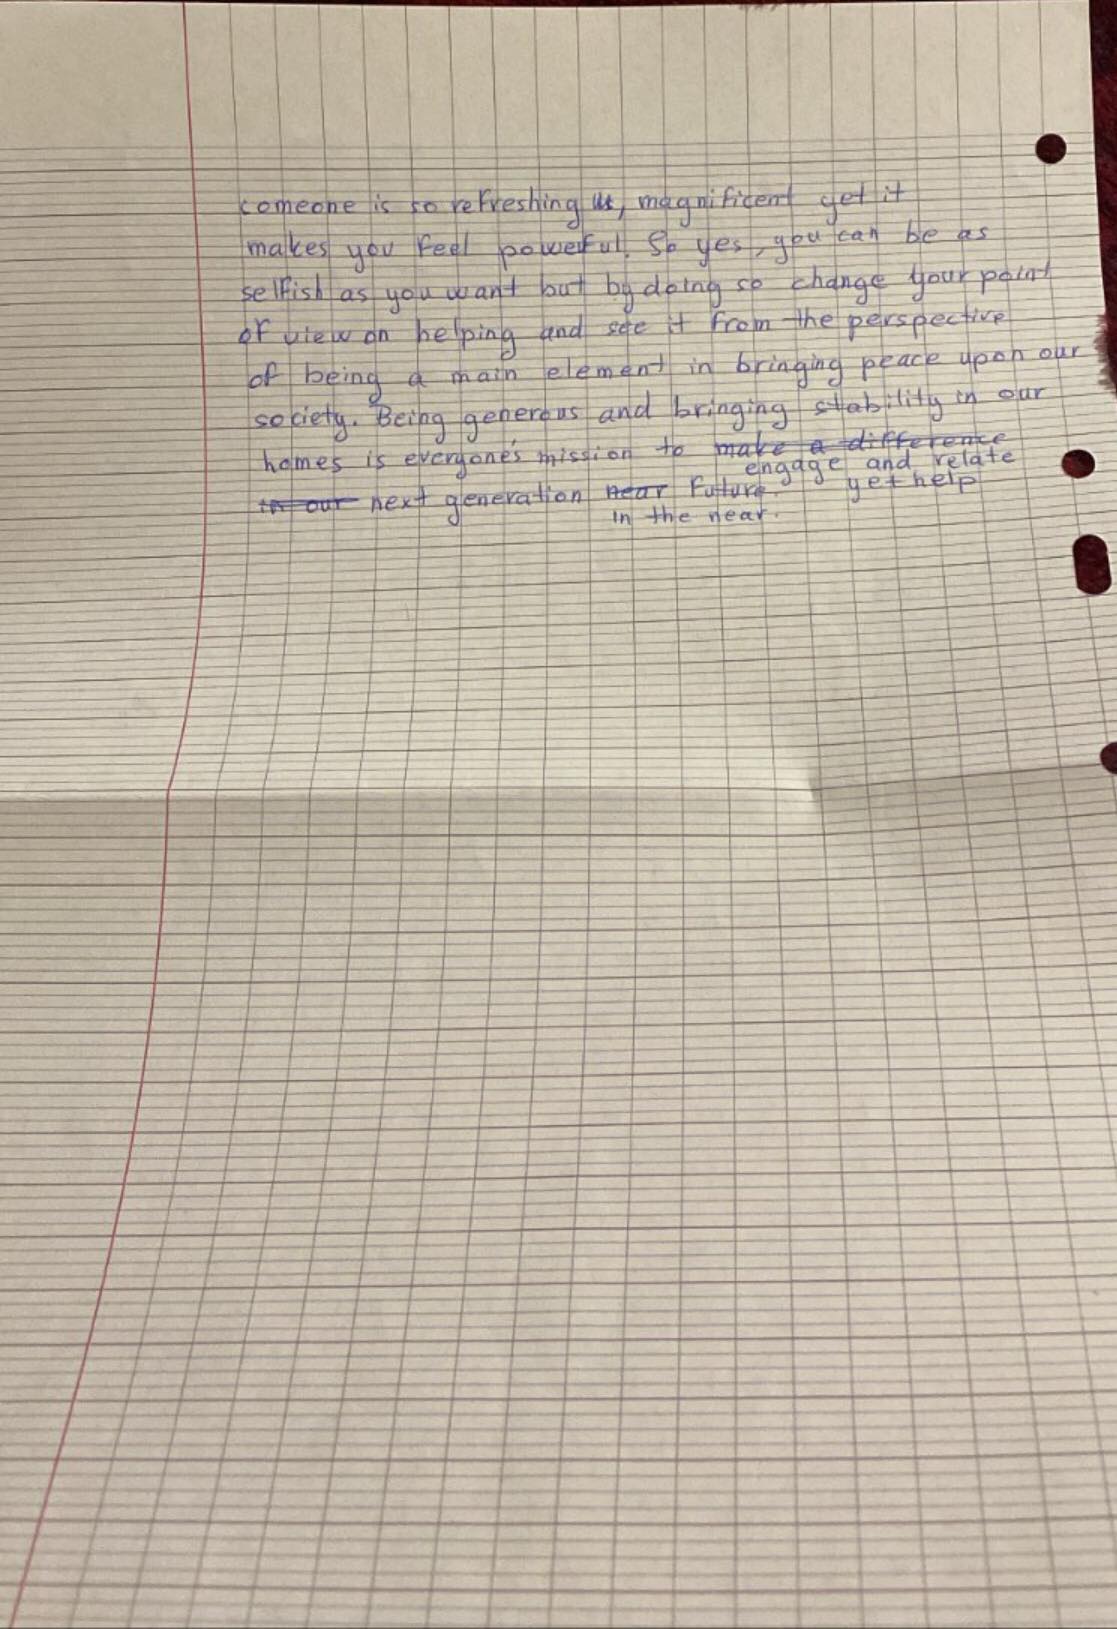 someone is so refreshing, magnificent yet it
makes you feel powerful. So yes, you can be as
selfish as you want but by doing so change your point
of view on helping and see it from the perspective
of being a main element in bringing peace upon our
society. Being generous and bringing stability in our
homes is everyone's mission to make a difference
engage and relate
in our next generation near future. yet help
in the near.